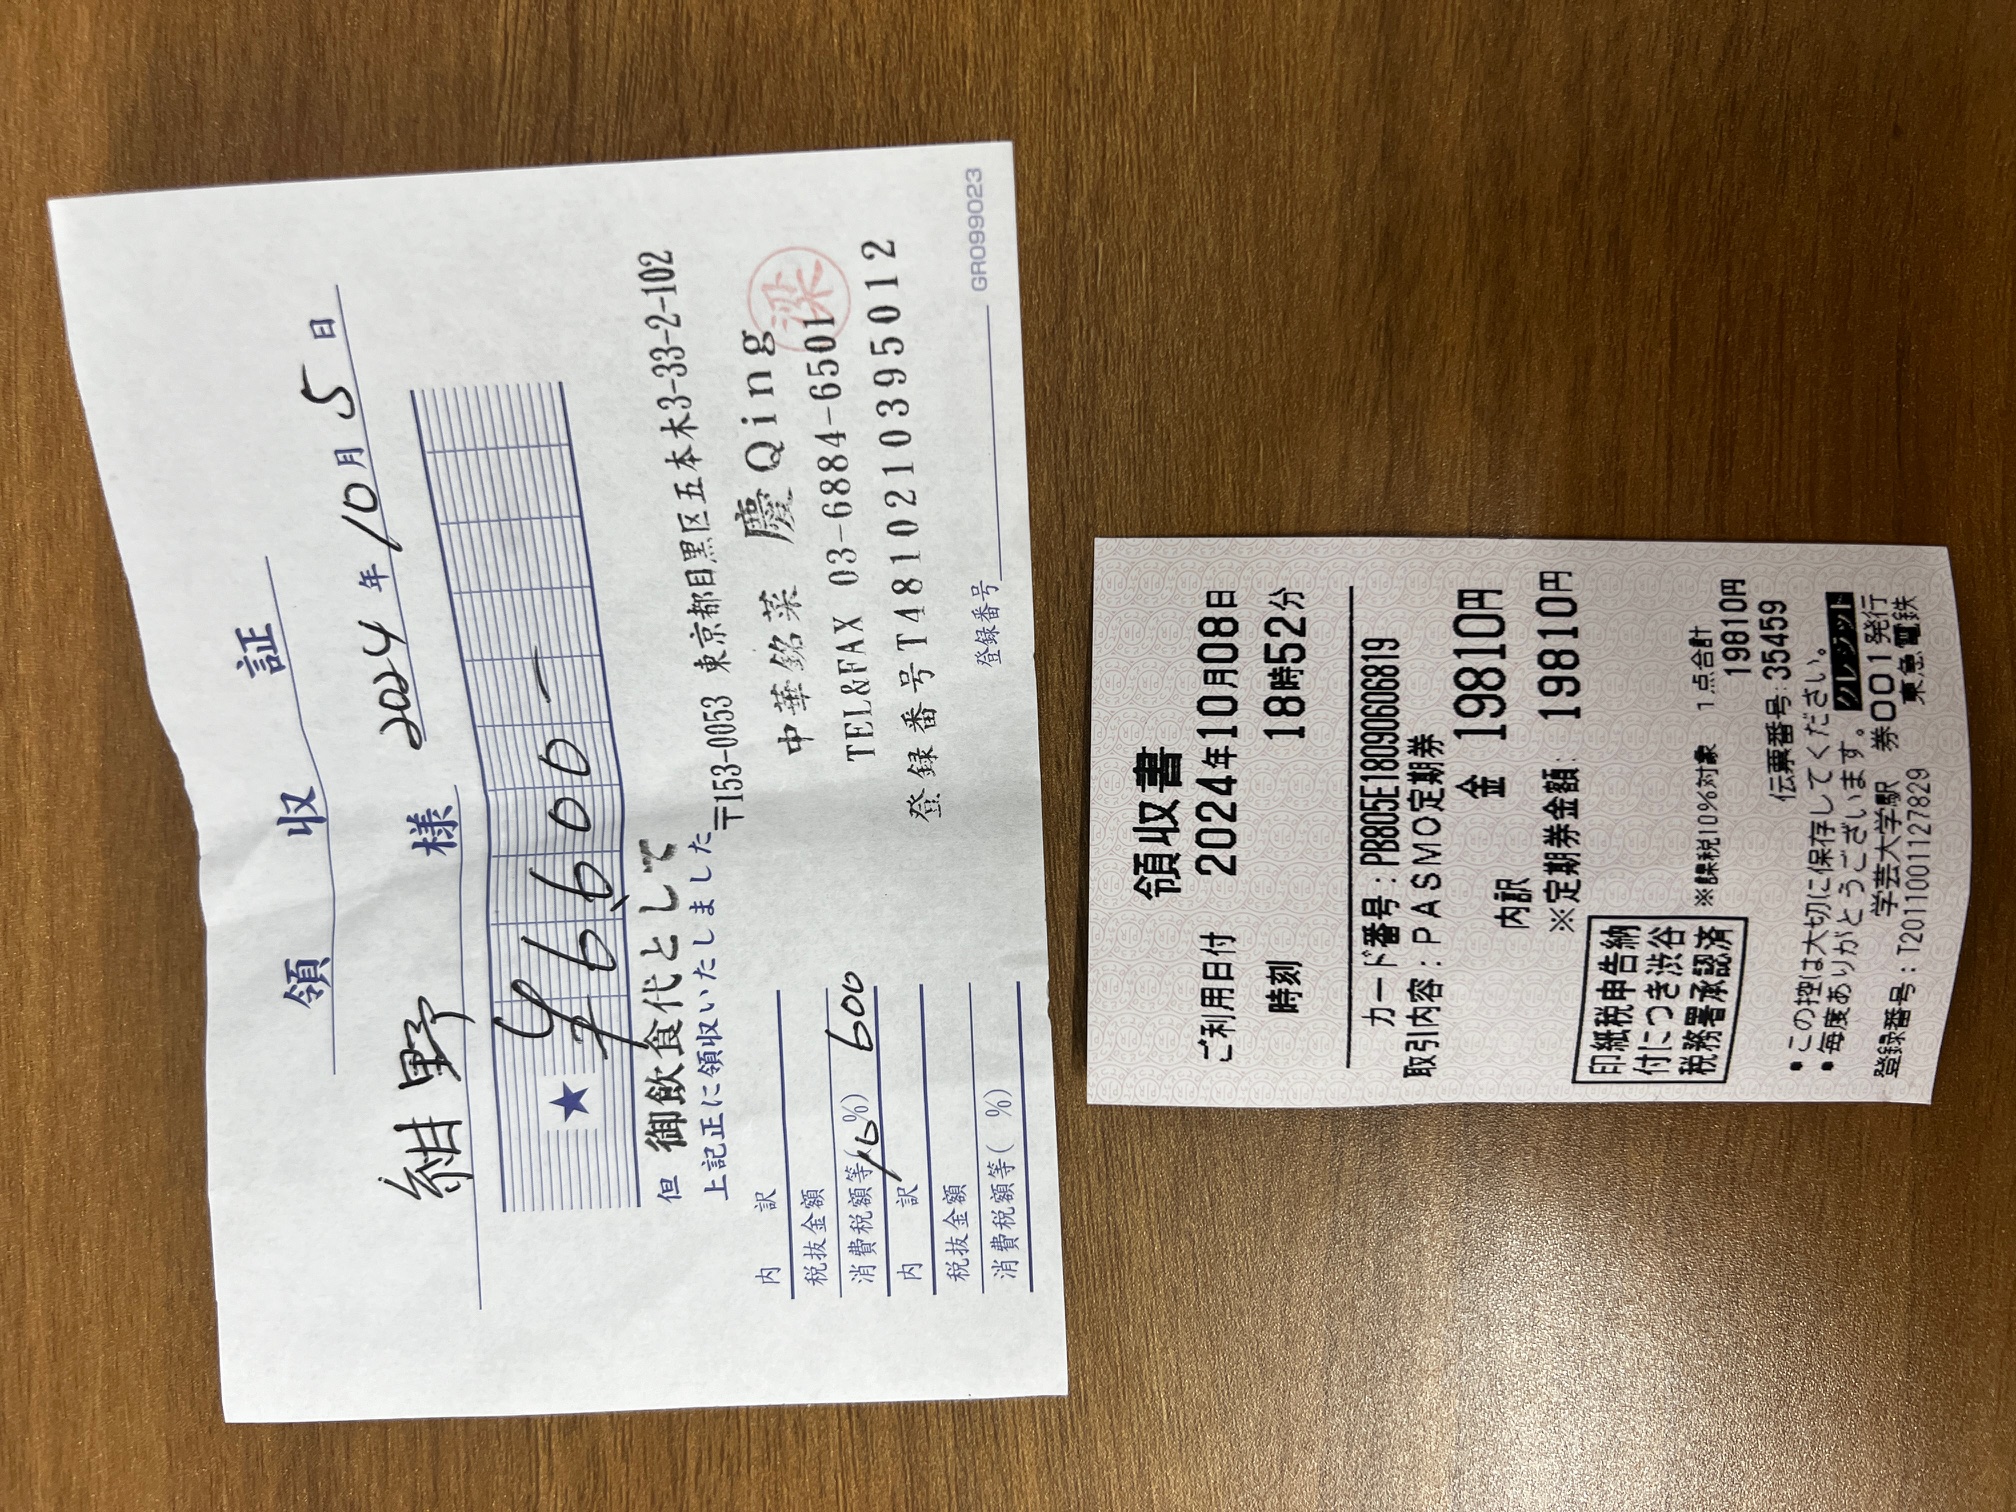 領収証
2024年10月5日
紺野 様
★ ¥6,600-
但 御飲食代として
上記正に領収いたしました
〒153-0053 東京都目黒区五本木3-33-2-102
中華銘菜 慶Qing
梁
TEL&FAX 03-6884-6501
登録番号T4810210395012
内 訳
税抜金額
消費税額等(10%) 600
内 訳
税抜金額
消費税額等( %)
登録番号
GR099023
領収書
ご利用日付 2024年10月08日
時刻 18時52分
カード番号:PB805E18090606819
取引内容:PASMO定期券
金 19810円
内訳
※定期券金額: 19810円
印紙税申告納
付につき渋谷
税務署承認済
※課税10%対象 1点合計
19810円
伝票番号:35459
•この控は大切に保存してください。
•毎度ありがとうございます。 クレジット
学芸大学駅 券001発行
登録番号:T2011001127829 東急電鉄